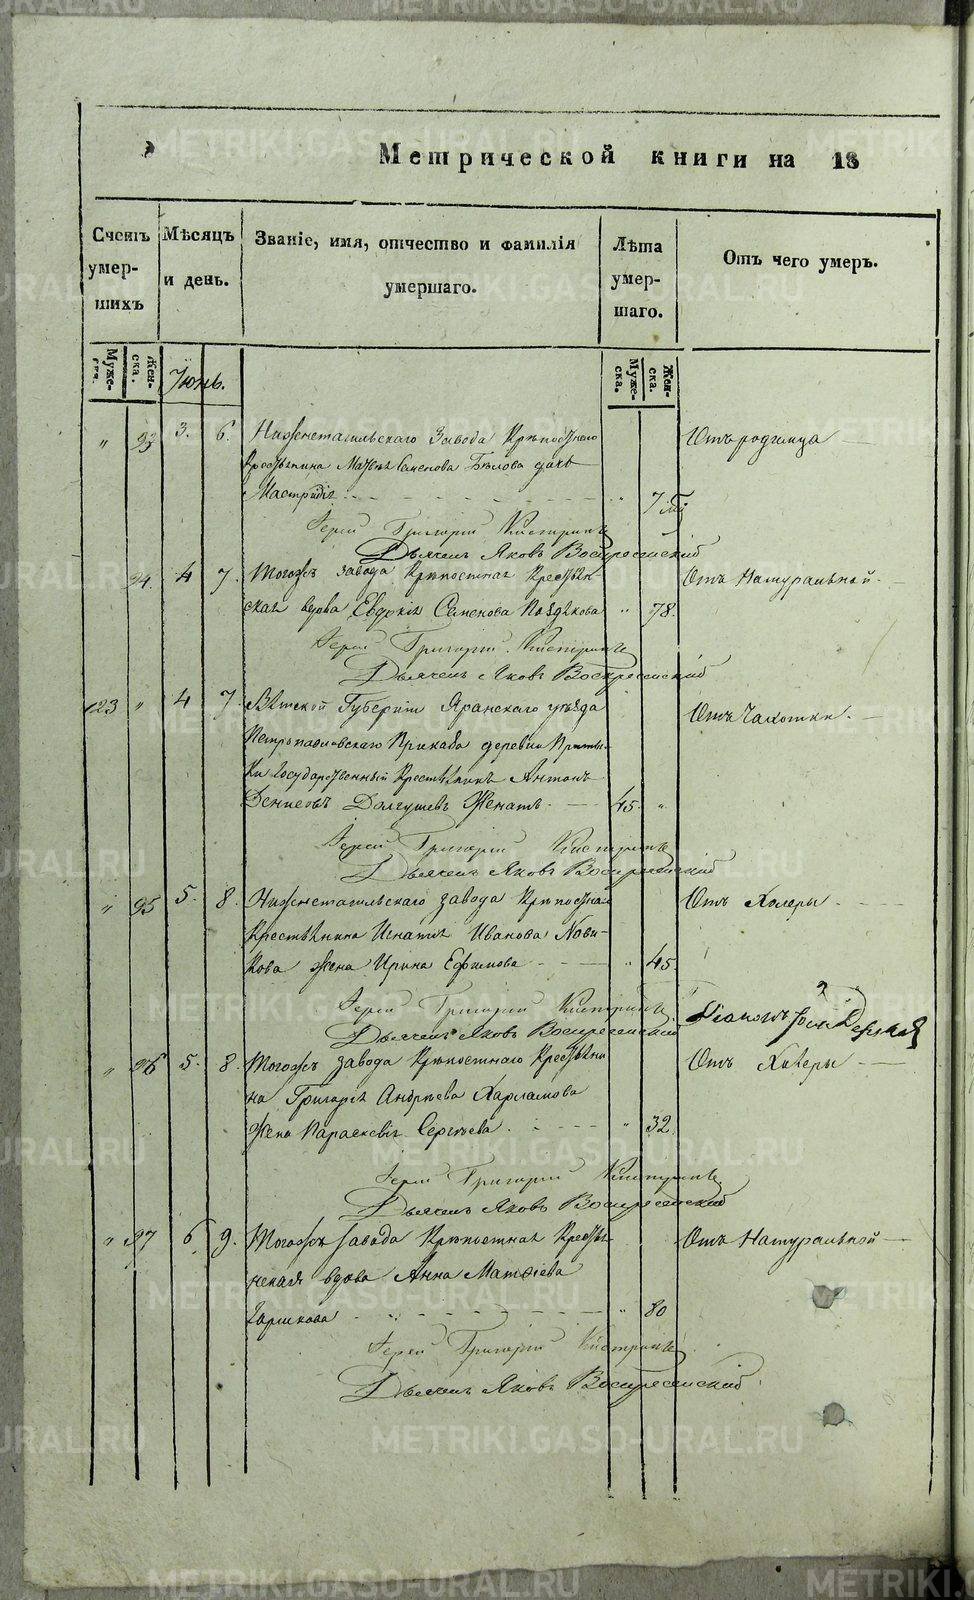 METRIKI.GASO-URAL.RU
Метрической книги на 18
Счетъ умершихъ
Мѣсяцъ и день.
Званіе, имя, отчество и фамилія умершаго.
Лѣта умершаго.
Отъ чего умеръ.
Муже-ска.
Жен-ска.
Іюнь.
Муже-ска.
Жен-ска.
" 93 3. 6. Нижнетагильскаго Завода Крѣпостнаго Отъ родимца
Крестьянина Матвѣя Семенова Бѣлова дочь
" 7
Іерей Григорій
Дьячекъ Яковъ Воскресенскій
94. 4 7. Тогожъ завода Крѣпостная Крестьян- Отъ Натуральной.
ская вдова Евдокія Семенова Позднякова " 78.
Іерей Григорій
Дьячекъ Яковъ Воскресенскій
123 " 4 7. Вятской Губерніи Яранскаго уѣзда Отъ Чахотки.
Петропавловскаго Приказа деревни
Государственный Крестьянинъ Антонъ
Денисовъ Долгушевъ Женатъ. 45. "
Іерей Григорій
Дьячекъ Яковъ Воскресенскій
" 95 5. 8. Нижнетагильскаго завода Крѣпостнаго Отъ Холеры
Крестьянина Игнатія Иванова Нови-
кова жена Ирина Ефимова " 45.
Іерей Григорій
Дьячекъ Яковъ Воскресенскій
" 96 5. 8. Тогожъ завода Крѣпостнаго Крестьяни- Отъ Холеры
на Григорія Андрѣева Харламова
жена Параскевія Сергѣева. " 32.
Іерей Григорій
Дьячекъ Яковъ Воскресенскій
" 97 6. 9. Тогожъ завода Крѣпостная Крестья- Отъ Натуральной
нская вдова Анна Матѳіева
" 80
Іерей Григорій
Дьячекъ Яковъ Воскресенскій.